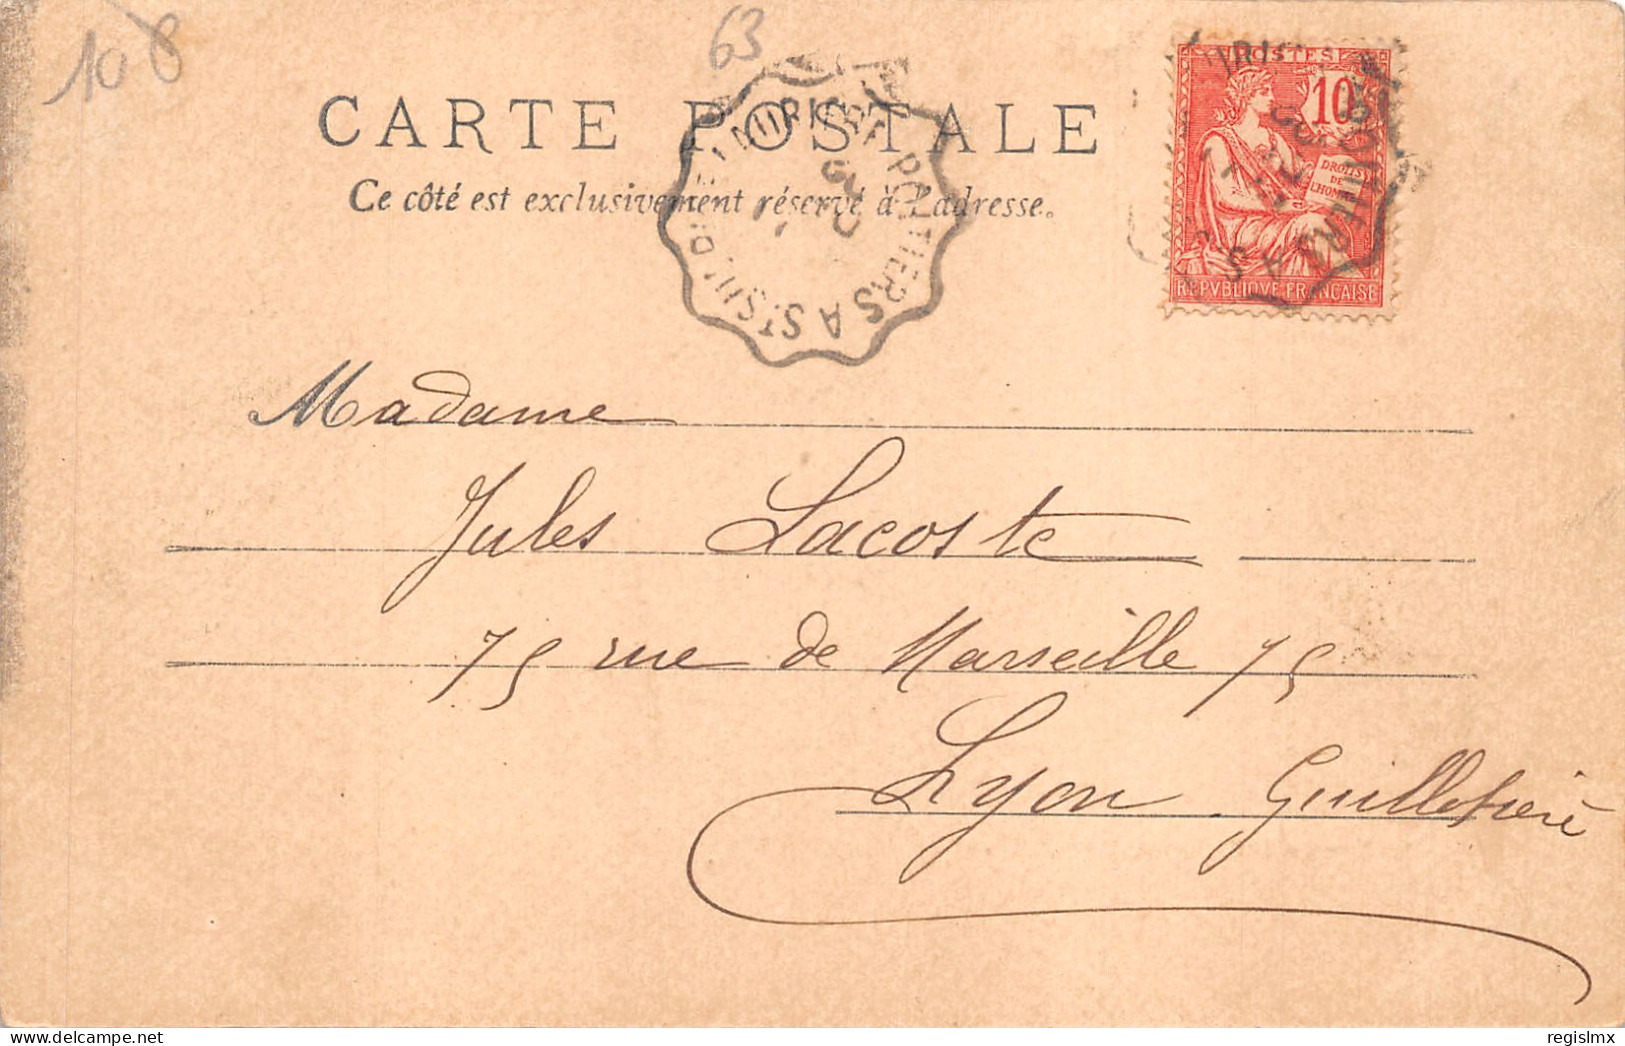 108
63
CARTE POSTALE
Ce côté est exclusivement réservé à l'adresse.
POITIERS A ST SUL
POSTES
10
DROITS
DE
L'HOMME
POITIERS A S
REPVBLIQVE FRANÇAISE
Madame
Jules Lacoste
75 rue de Marseille 75
Lyon Guillotière
regislmx